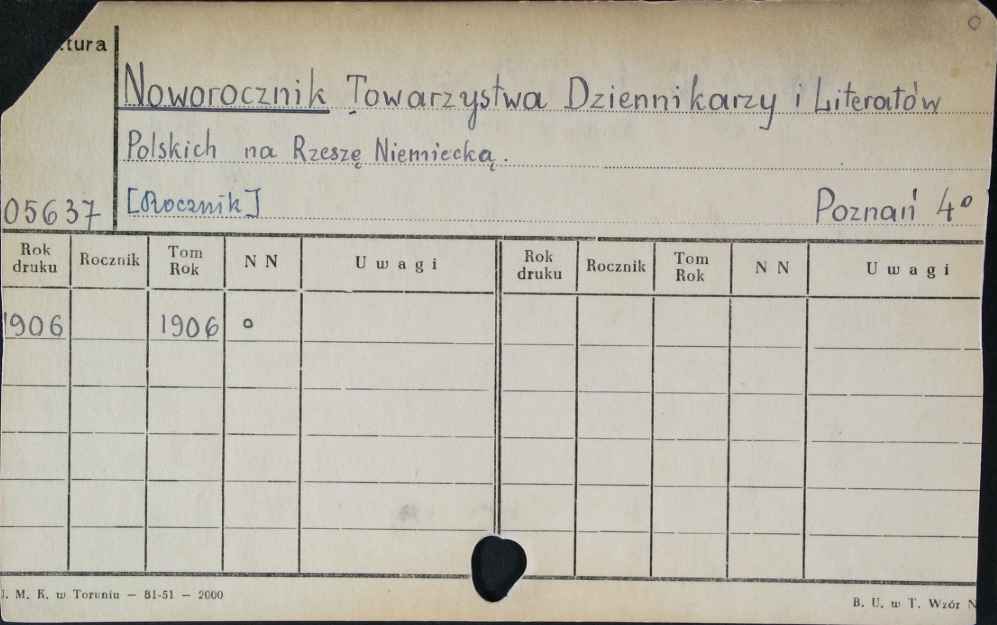 tura
Noworocznik Towarzystwa Dziennikarzy i Literatów
Polskich na Rzeszę Niemiecką.
05637 [Rocznik] Poznań 4°
Rok druku Rocznik Tom Rok N N Uwagi Rok druku Rocznik Tom Rok N N Uwagi
1906 1906 o
J. M. K. w Toruniu — 81-51 — 2000 B. U. w T. Wzór N